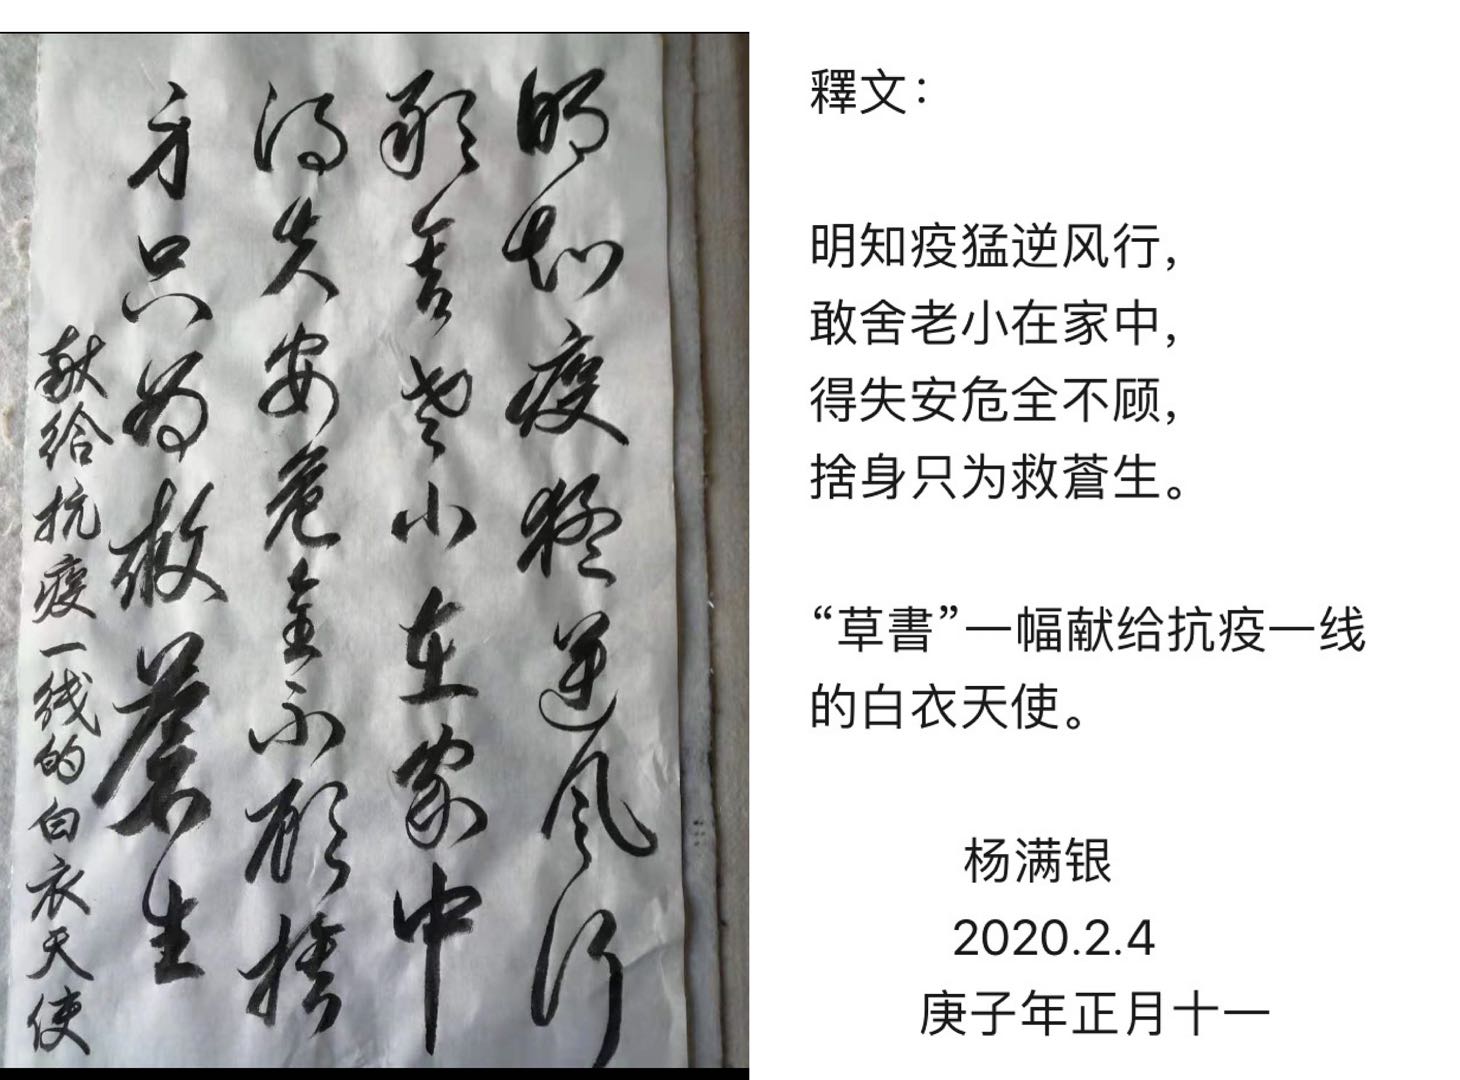 明知疫猛逆风行
敢舍老小在家中
得失安危全不顾捨
身只为救蒼生
献给抗疫一线的白衣天使
釋文：
明知疫猛逆风行，
敢舍老小在家中，
得失安危全不顾，
捨身只为救蒼生。
“草書”一幅献给抗疫一线
的白衣天使。
杨满银
2020.2.4
庚子年正月十一